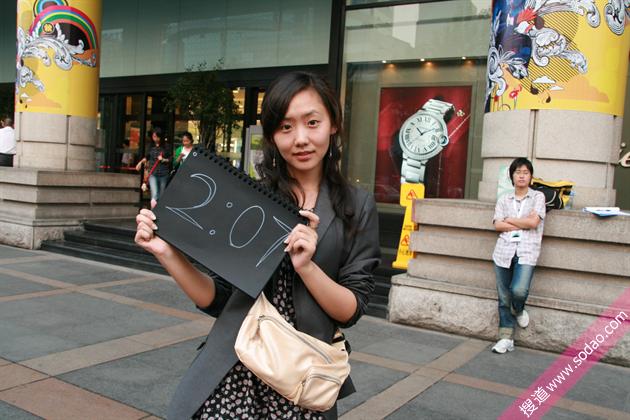 2:07
搜道 www.sodao.com